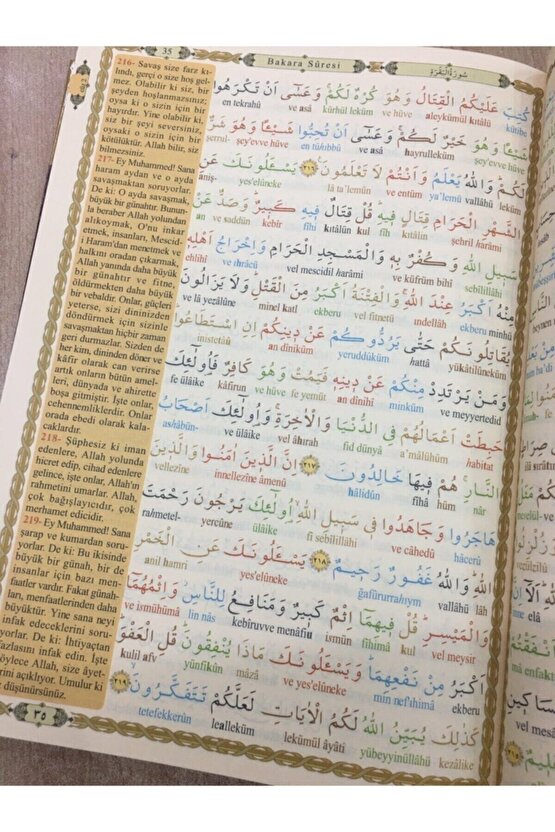 35
Bakara Sûresi
سُورَةُ الْبَقَرَةِ
216- Savaş size farz kı-
lındı, gerçi o size hoş gel-
mez. Olabilir ki siz, bir
şeyden hoşlanmazsınız;
oysa ki o sizin için bir
hayırdır. Yine olabilir ki,
siz bir şeyi seversiniz,
oysaki o sizin için bir
kötülüktür. Allah bilir, siz
bilmezsiniz.
217- Ey Muhammed! Sana
haram aydan ve o ayda
savaşmaktan soruyorlar.
De ki: O ayda savaşmak,
büyük bir günahtır. Bunun-
la beraber Allah yolundan
alıkoymak, O'nu inkar
etmek, insanları, Mescid-i
Haram'dan menetmek ve
halkını oradan çıkarmak
Allah yanında daha büyük
bir günahtır ve fitne,
öldürmekten daha büyük
bir vebaldir. Onlar, güçleri
yeterse, sizi dininizden
döndürmek için sizinle
savaşmaktan hiçbir zaman
geri durmazlar. Sizden de
her kim, dininden döner ve
kâfir olarak can verirse
artık onların bütün amel-
leri, dünyada ve ahirette
boşa gitmiştir. İşte onlar,
cehennemliklerdir. Onlar
orada ebedi olarak kala-
caklardır.
218- Şüphesiz ki iman
edenlere, Allah yolunda
hicret edip, cihad edenlere
gelince, işte onlar, Allah'ın
rahmetini umarlar. Allah,
çok bağışlayıcıdır, çok
merhamet edicidir.
219- Ey Muhammed! Sana
şarap ve kumardan soru-
yorlar. De ki: Bu ikisinde
büyük bir günah, bir de
insanlar için bazı men-
faatler vardır. Fakat günah-
ları, menfaatlerinden daha
büyüktür. Yine sana neyi
infak edeceklerini soru-
yorlar. De ki: İhtiyaçtan
fazlasını infak edin. İşte
böylece Allah, size âyet-
lerini açıklıyor. Umulur ki
düşünürsünüz.
كُتِبَ عَلَيْكُمُ الْقِتَالُ وَهُوَ كُرْهٌ لَكُمْ وَعَسٰٓى اَنْ تَكْرَهُوا
kütibe aleykümül kıtâlü ve hüve kürhül leküm ve asâ en tekrahû
شَيْـًٔا وَهُوَ خَيْرٌ لَكُمْ وَعَسٰٓى اَنْ تُحِبُّوا شَيْـًٔا وَهُوَ شَرٌّ
şey'ev ve hüve hayrulleküm ve asâ en tühıbbû şey'ev ve hüve şerrul-
لَكُمْ وَاللّٰهُ يَعْلَمُ وَاَنْتُمْ لَا تَعْلَمُونَ ﴿٢١٦﴾ يَسْـَٔلُونَكَ عَنِ
leküm vallâhü ya'lemü ve entüm lâ ta'lemûn yes'elûneke aniş-
الشَّهْرِ الْحَرَامِ قِتَالٍ فِيهِ قُلْ قِتَالٌ فِيهِ كَبِيرٌ وَصَدٌّ عَنْ
şehril harâmi kıtâlin fîh kul kıtâlün fîhi kebîr ve saddün an
سَبِيلِ اللّٰهِ وَكُفْرٌ بِهِ وَالْمَسْجِدِ الْحَرَامِ وَاِخْرَاجُ اَهْلِهِ
sebîlillâhi ve küfrüm bihî vel mescidil harâmi ve ıhrâcü ehlihî
مِنْهُ اَكْبَرُ عِنْدَ اللّٰهِ وَالْفِتْنَةُ اَكْبَرُ مِنَ الْقَتْلِ وَلَا يَزَالُونَ
minhü ekberu ındellâh vel fitnetü ekberu minel katl ve lâ yezâlûne
يُقَاتِلُونَكُمْ حَتّٰى يَرُدُّوكُمْ عَنْ دِينِكُمْ اِنِ اسْتَطَاعُوا
yukâtilûneküm hattâ yeruddûküm an dîniküm inistetâû
وَمَنْ يَرْتَدِدْ مِنْكُمْ عَنْ دِينِهِ فَيَمُتْ وَهُوَ كَافِرٌ فَاُولٰٓئِكَ
ve meyyertedid minküm an dînihî fe yemüt ve hüve kâfirun fe ülâike
حَبِطَتْ اَعْمَالُهُمْ فِى الدُّنْيَا وَالْاٰخِرَةِ وَاُولٰٓئِكَ اَصْحَابُ
habitat a'mâlühüm fid dünyâ vel âhırah ve ülâike ashâbün-
النَّارِ هُمْ فِيهَا خَالِدُونَ ﴿٢١٧﴾ اِنَّ الَّذِينَ اٰمَنُوا وَالَّذِينَ
nâr hüm fîhâ hâlidûn innellezîne âmenû vellezîne
هَاجَرُوا وَجَاهَدُوا فِى سَبِيلِ اللّٰهِ اُولٰٓئِكَ يَرْجُونَ رَحْمَتَ
hâcerû ve câhedû fî sebîlillâhi ülâike yercûne rahmetel-
اللّٰهِ وَاللّٰهُ غَفُورٌ رَحِيمٌ ﴿٢١٨﴾ يَسْـَٔلُونَكَ عَنِ الْخَمْرِ
lâh vallâhü ğafûrurrahıym yes'elûneke anil hamri
وَالْمَيْسِرِ قُلْ فِيهِمَا اِثْمٌ كَبِيرٌ وَمَنَافِعُ لِلنَّاسِ وَاِثْمُهُمَا
vel meysir kul fîhimâ ismün kebîruvve menâfiu lin nâs ve ismühümâ
اَكْبَرُ مِنْ نَفْعِهِمَا وَيَسْـَٔلُونَكَ مَاذَا يُنْفِقُونَ قُلِ الْعَفْوَ
ekberu min nef'ıhimâ ve yes'elûneke mâzâ yünfikûn kulil afv
كَذٰلِكَ يُبَيِّنُ اللّٰهُ لَكُمُ الْاٰيَاتِ لَعَلَّكُمْ تَتَفَكَّرُونَ ﴿٢١٩﴾
kezâlike yübeyyinüllâhü lekümül âyâti lealleküm tetefekkerûn
٣٥